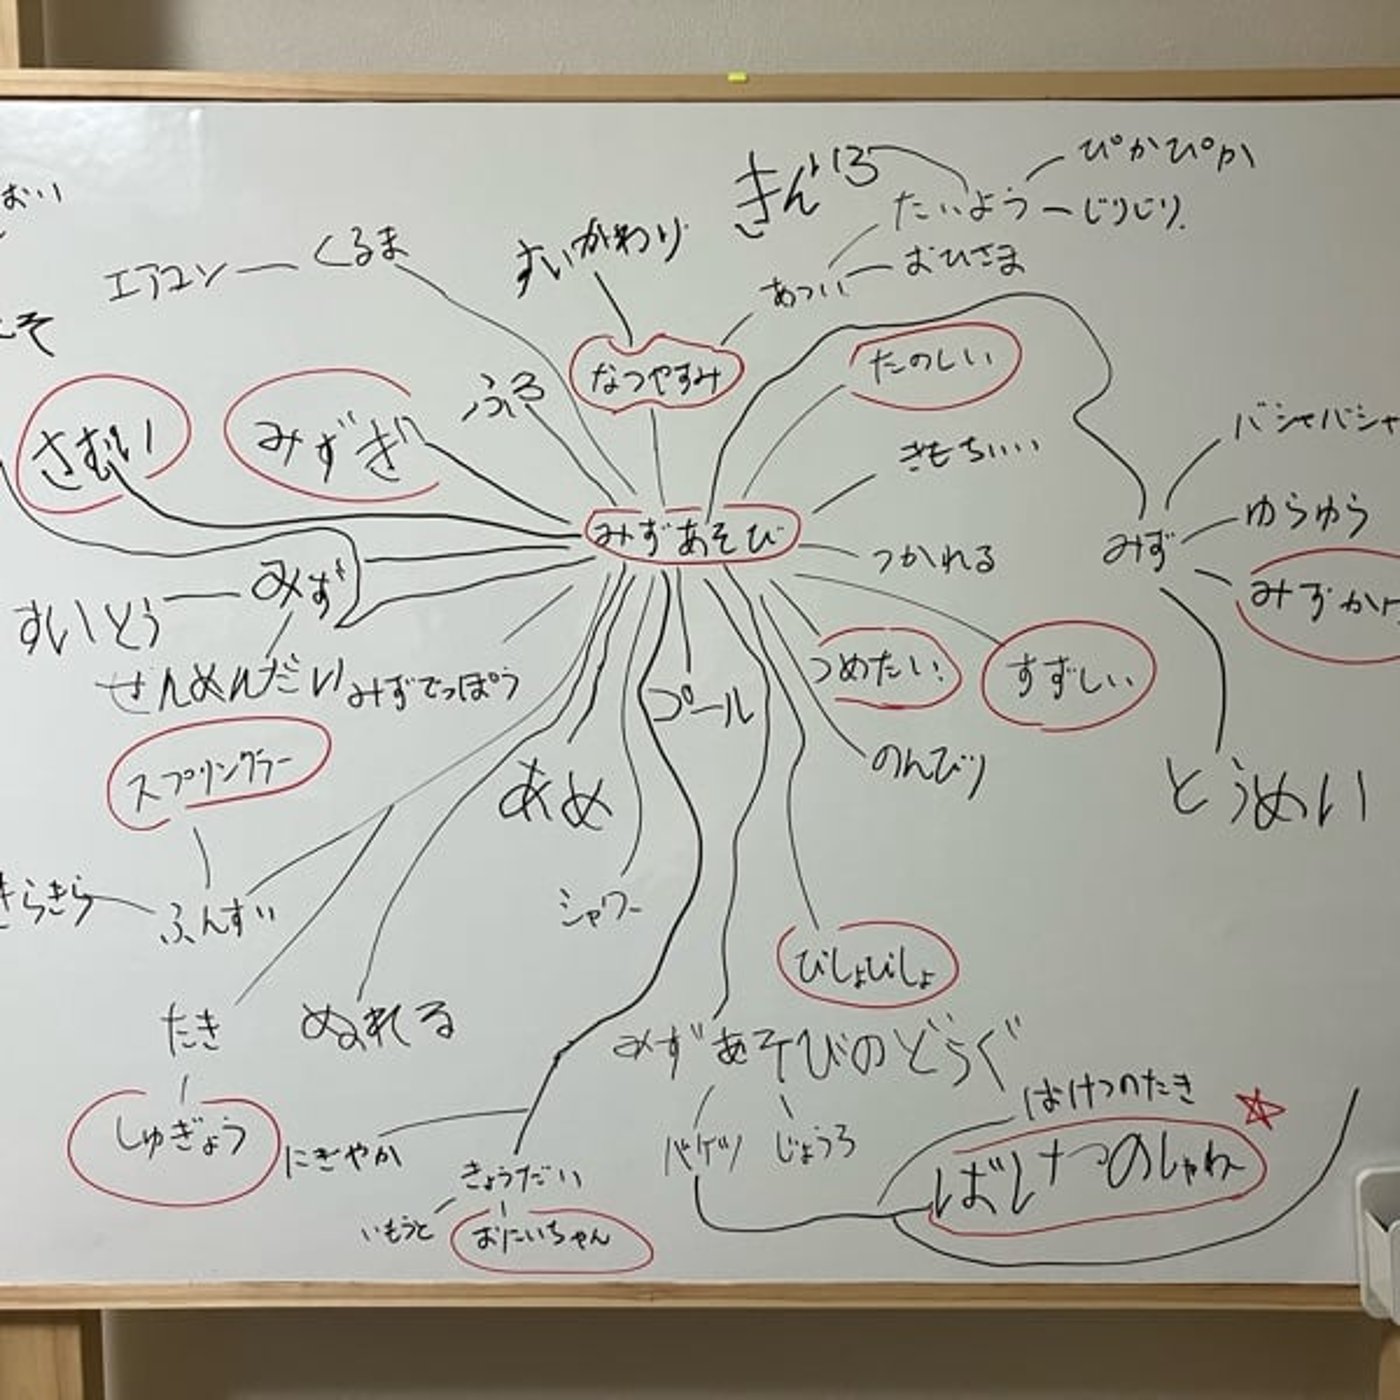 ぴかぴか
きんいろ
たいよう
じりじり
おひさま
あつい
すいかわり
くるま
エアコン
なつやすみ
たのしい
ふろ
みずぎ
さむい
きもちいい
バシャバシャ
ゆらゆら
みず
みずあそび
つかれる
みず
すいとう
せんめんだい
みずでっぽう
つめたい
すずしい
プール
のんびり
とうめい
スプリングラー
あめ
シャワー
きらきら
ふんすい
びしょびしょ
たき
ぬれる
みずあそびのどうぐ
しゅぎょう
にぎやか
きょうだい
いもうと
おにいちゃん
バケツ
じょうろ
ばけつのたき
ばけつのしゃわー